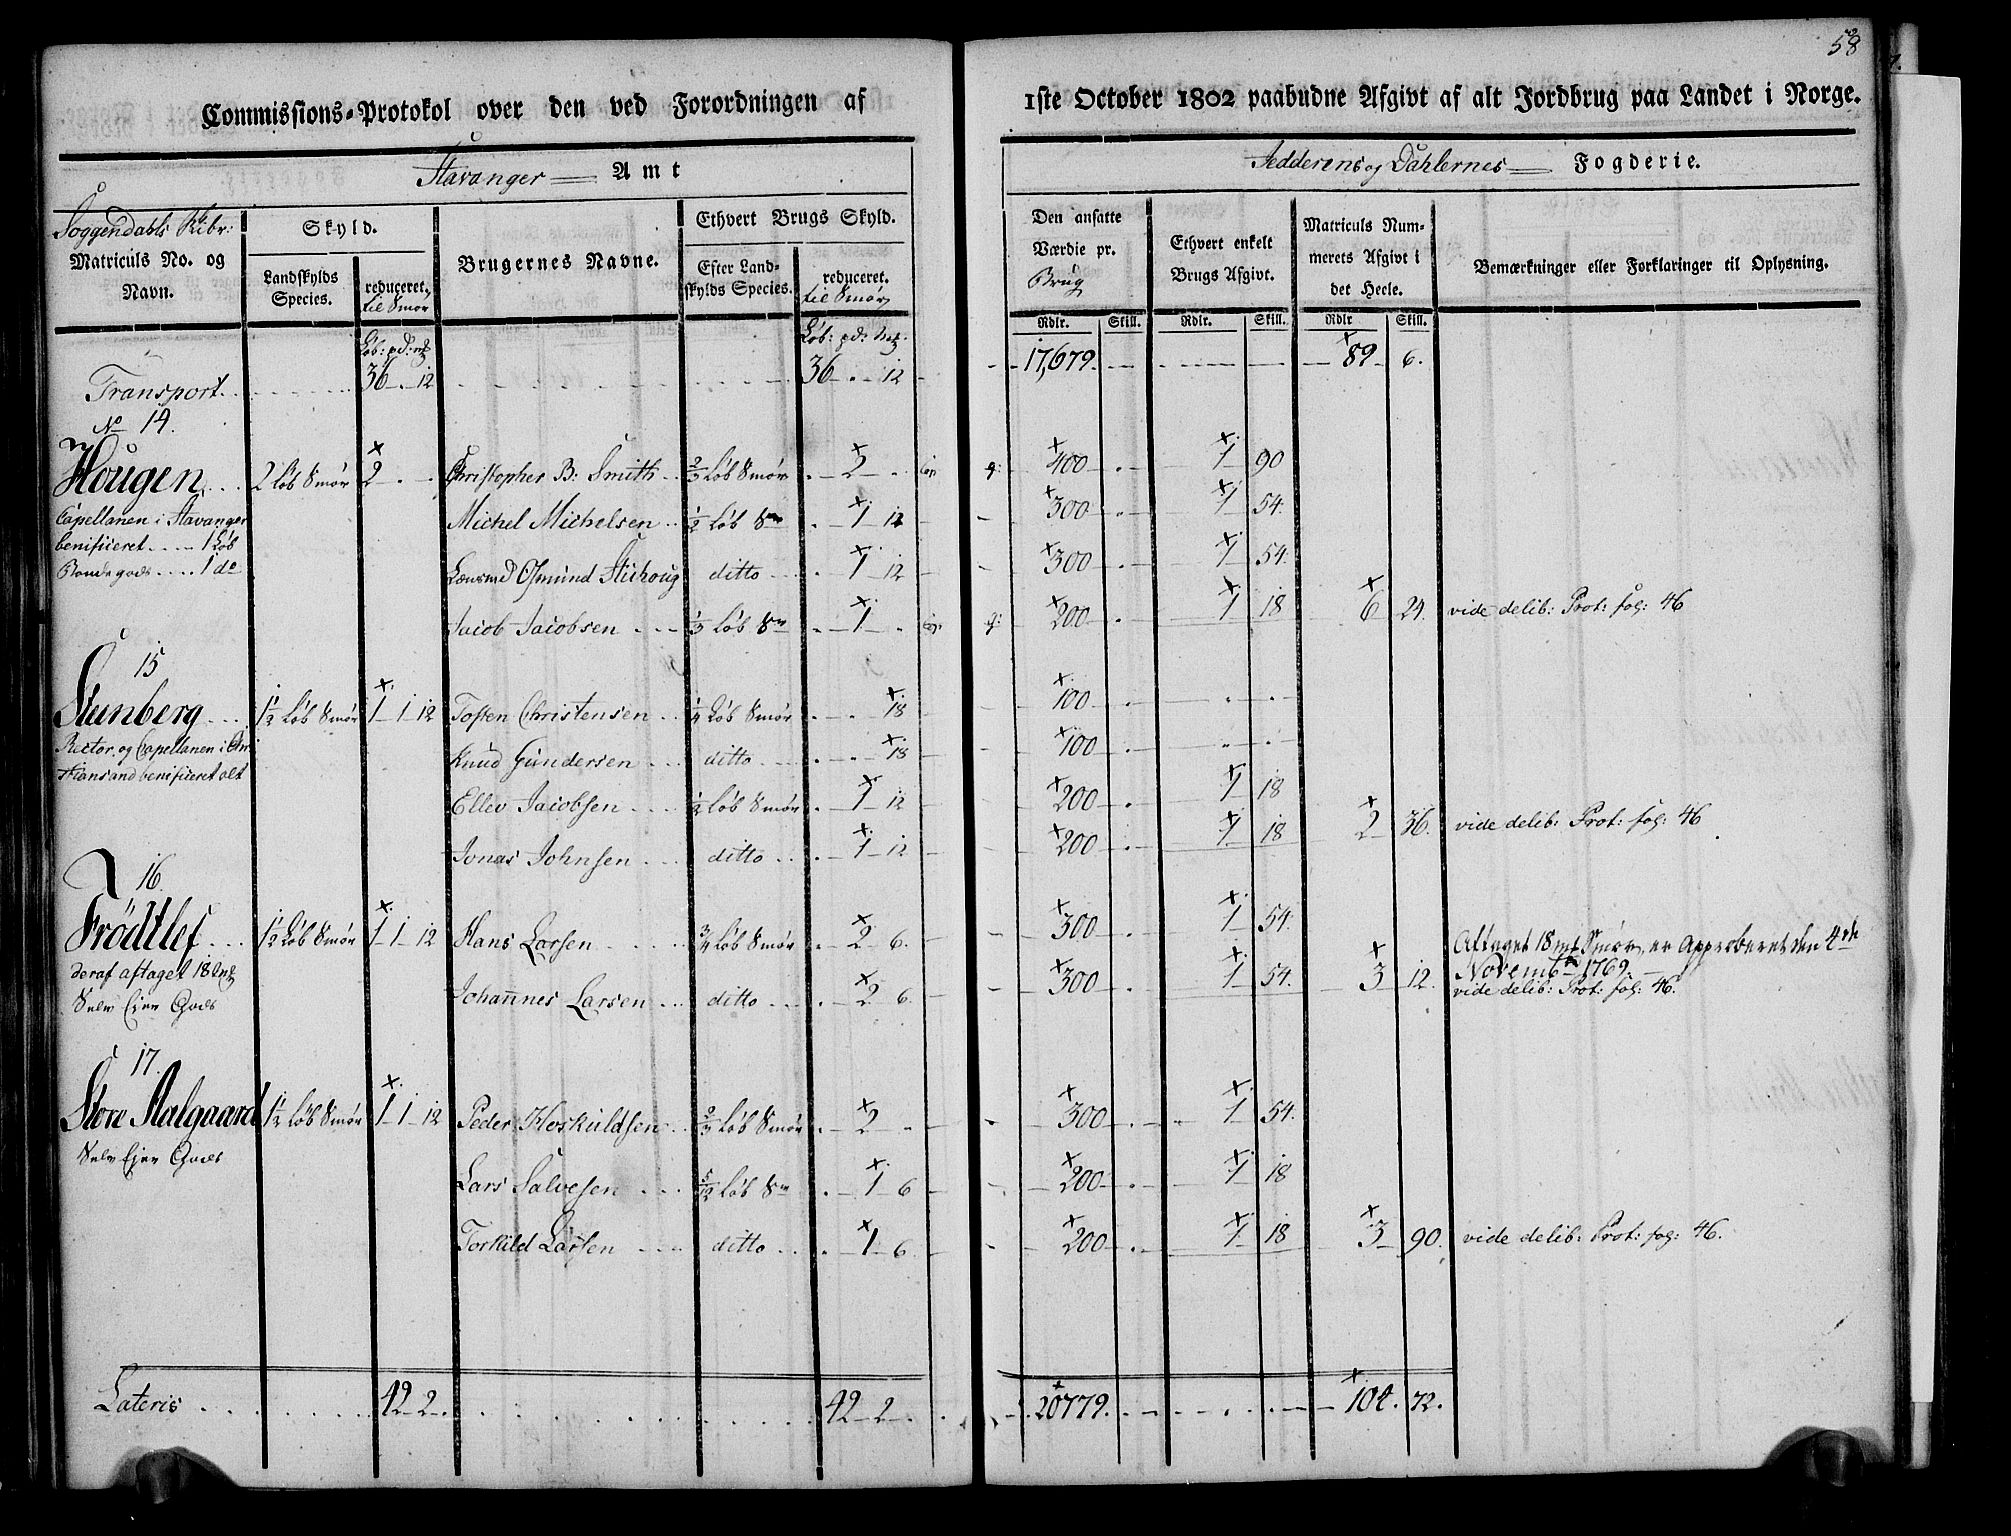 58
Commissions-Protokol over den ved Forordningen af 1ste October 1802 paabudne Afgivt af alt Jordbrug paa Landet i Norge.
Stavanger Amt
Jedderens og Dahlernes Fogderie.
Soggendahls Skibr:
Matriculs No. og Navn.
Skyld.
Landskylds Species.
reduceret, til Smør
Brugernes Navne.
Ethvert Brugs Skyld.
Efter Landskylds Species.
reduceret. til Smør
Den ansatte Værdie pr. Brug
Ethvert enkelt Brugs Afgivt.
Matriculs Nummerets Afgivt i det Heele.
Bemærkninger eller Forklaringer til Oplysning.
Rdlr. Skill. Rdlr. Skill. Rdlr Skill.
Transport 36 . 12 36 . 12 17,679. 89 6.
No 14.
Hougen 2 Løb Smør 2 Christopher B: Smith 2/3 Løb Smør 2 400 1 90
Capellanen i Stavanger Michel Michelsen 1/2 Løb Smr 1 12 300 1 54.
benificeret 1 Løb
Bondegods 1 do Lensmd Osmund Stuhoug ditto 1 12 300 1 54.
Jacob Jacobsen 1/3 Løb Smr 1 200 1 18 6 24. vide delib: Prot: fol: 46
15
Stenberg 1 1/2 Løb Smør 1 1 12 Tosten Christensen 1/4 Løb Smør 18 100
Rector og Capellanen i Chri
stiansand benificeret alt Knud Gundersen ditto 18 100
Ellev Jacobsen 1/2 Løb Smør 1 12 200 1 18
Jonas Johnsen ditto 1 12 200 1 18 2 36. vide delib: Prot: fol: 46
16
Frödtlef 1 1/2 Løb Smør 1 1 12 Hans Larsen 3/4 Løb Smør 2 6. 300 1 54.
deraf aftaget 18 mk Aftaget 18 mk Smør, er Approberet den 4de
Novembr 1769.
Selv Ejer Gods Johannes Larsen ditto 2 6. 300 1 54. 3 12. vide delib: Prot: fol: 46.
17.
Store Aalgaard 1 1/2 Løb Smør 1 1 12 Peder Hoskuldsen 2/3 Løb Smør 2 300 1 54.
Selv Ejer Gods
Lars Salvesen 5/12 Løb Smr 1 6 200 1 18
Torkild Larsen ditto 1 6 200 1 18 3 90. vide delib: Prot: fol: 46.
Lateris 42 2 42 2 20779. 104. 72.